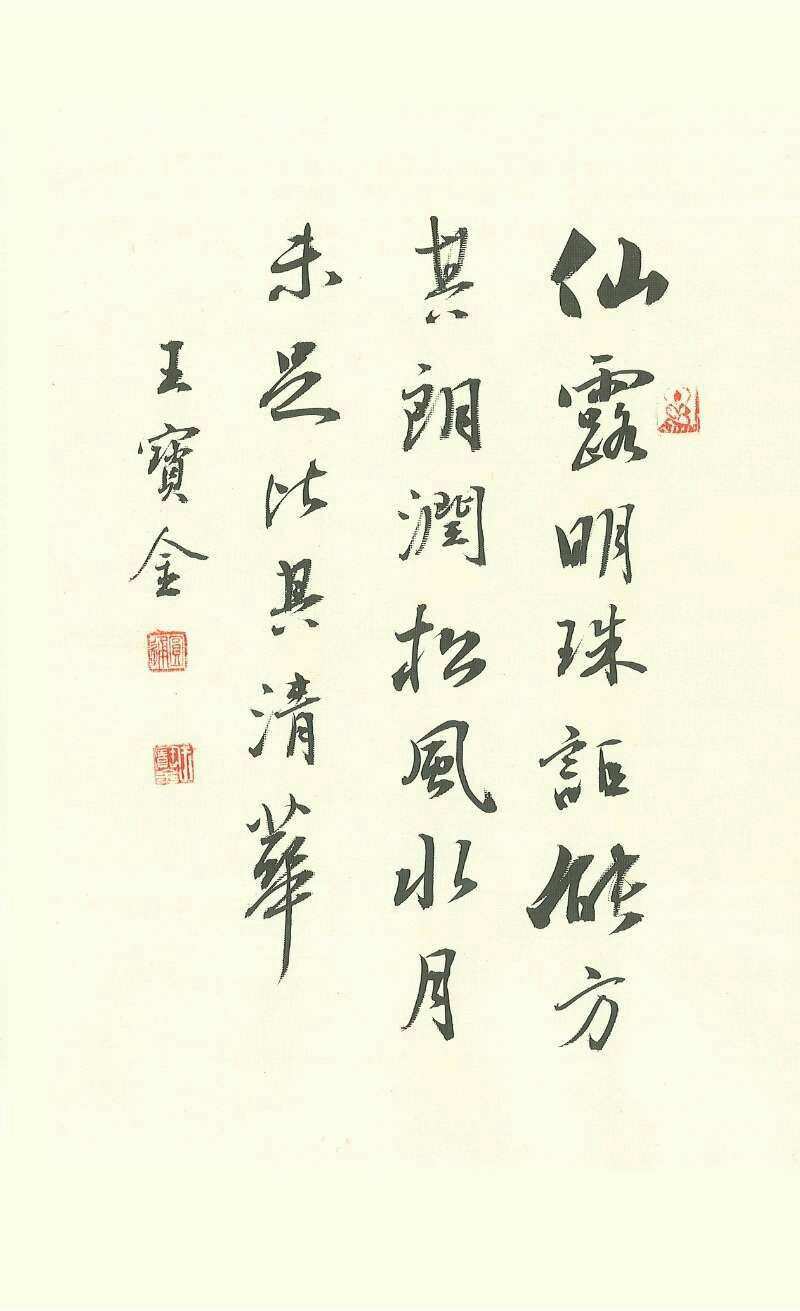 仙露明珠詎能方
其朗潤松風水月
未足比其清華
王寶金